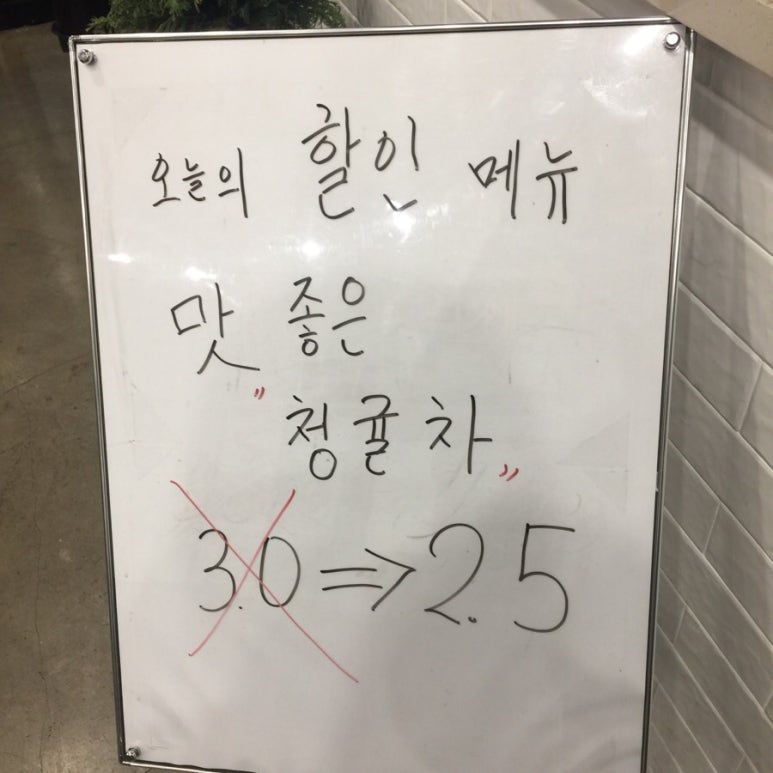 오늘의 할인 메뉴
맛 좋은
"청귤차"
3.0 ⇒ 2.5